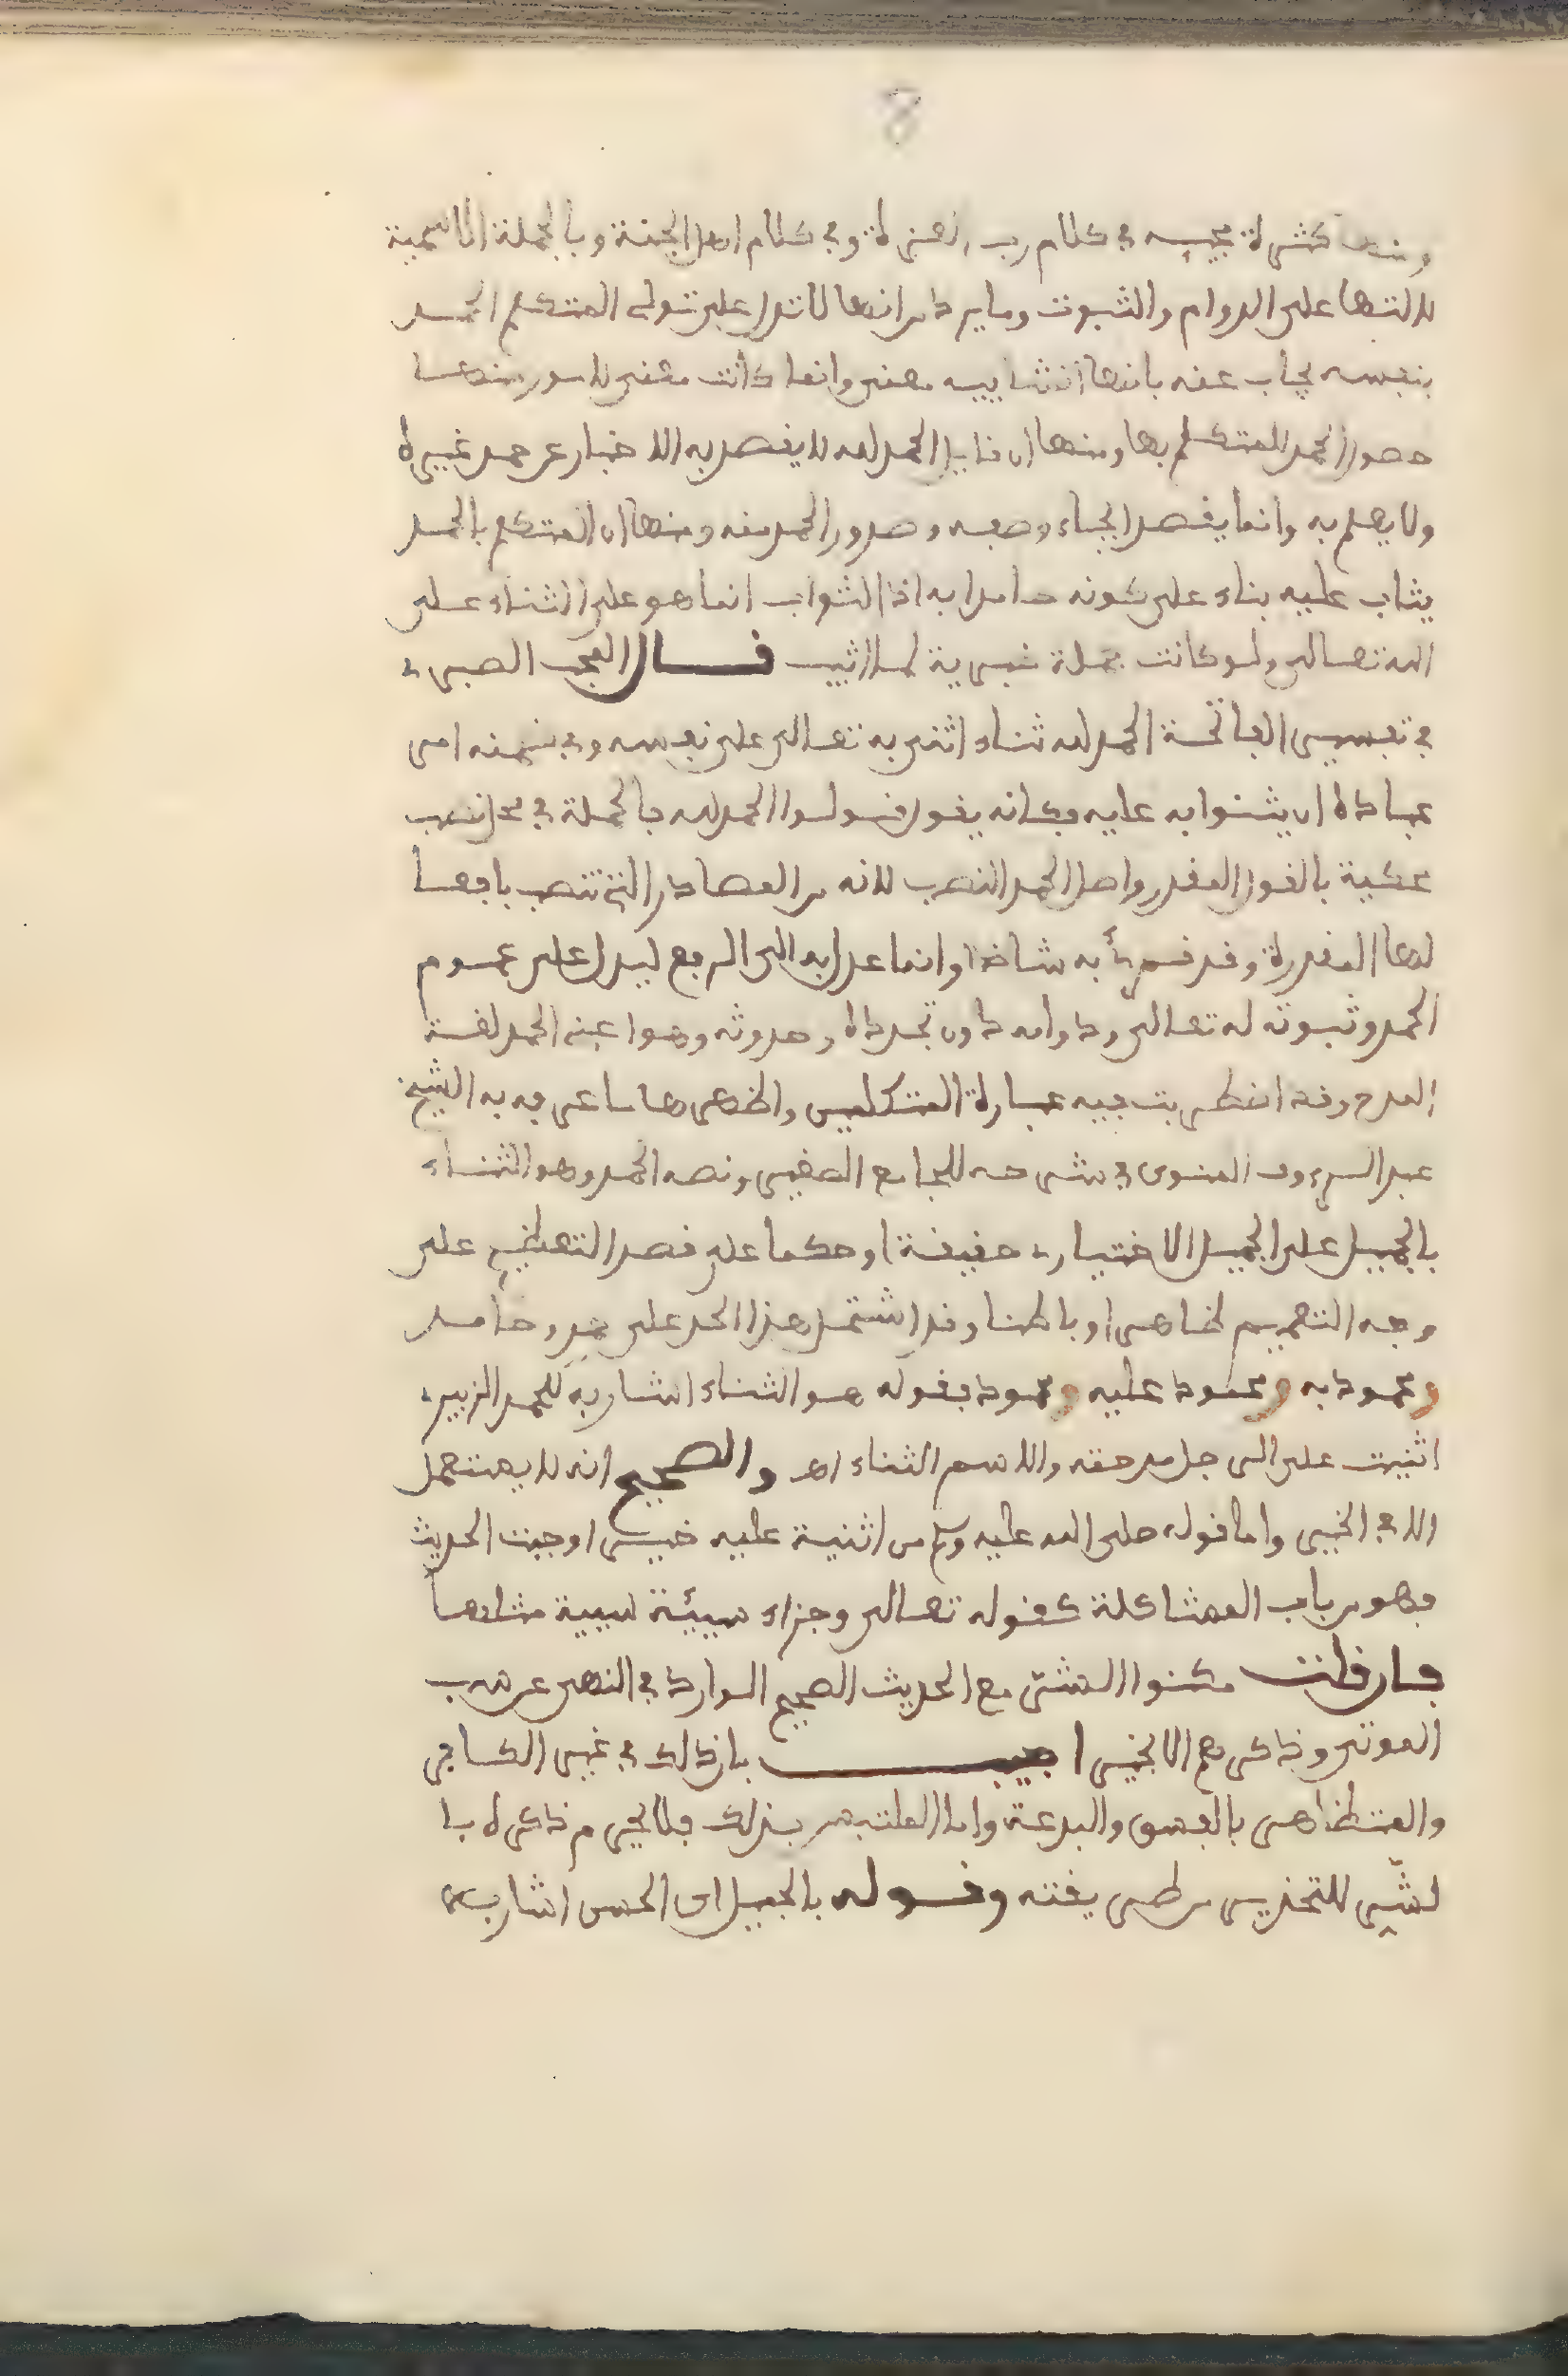 8
ومنها كثرة مجيبه في كلام رب العزة وفي كلام اهل الجنة وبالجملة الاسمية
لدلالتها على الدوام والثبوت وما يرد من انها لا تدل على تولي المتكلم الحمد
بنفسه يجاب عنه بانها انشاييه معنى وانما كانت معنى لامور منها
حصول الحمد للمتكلم بها ومنها ان قايل الحمد لله لا يقصد به الاخبار عن حمد غيره
ولا يعلم به وانما يقصد ايجاد وصفه وصدور الحمد منه ومنها ان المتكلم بالحمد
يثاب عليه بناء على كونه حامدا به اذ الثواب انما هو على الثناء على
الله تعالى ولو كانت جملة خبرية لما اثيب قال المحب الطبري
في تفسير الفاتحة الحمد لله ثناء اثنى به تعالى على نفسه وفي ضمنه امر
عباده ان يثنوا به عليه فكانه يقول قولوا الحمد لله فالجملة في محل نصب
محكية بالقول المقدر واصل الحمد النصب لانه من المصادر التي تنصب بافعا
لها المقدرة وقد قرئ به شاذا وانما عدل به الى الرفع ليدل على عموم
الحمد وثبوته له تعالى ودوامه دون تجدده وحدوثه وهو اعني الحمد لغة
المدح وقد اضطربت فيه عبارة المتكلمين واظهرها ما عرفه به الشيخ
عبد الرءوف المنوي في شرحه للجامع الصغير ونصه الحمد وهو الثناء
بالجميل على الجميل الاختياري حقيقة او حكما على قصد التعظيم على
وجه التعميم ظاهرا وباطنا وقد اشتمل هذا الحد على حمد وحامد
ومحمود به ومحمود عليه ومحمود بقوله هو الثناء اشار به للحمد الزبيدي
اثنيت على الرجل مدحته والاسم الثناء اهـ والصحيح انه لا يستعمل
الا في الخير واما قوله صلى الله عليه وسلم من اثنية عليه خيرا وجبت الحديث
فهو من باب المشاكلة كقوله تعالى وجزاء سيئة سيية مثلها
فان قلت مكنوا الشر مع الحديث الصحيح الوارد في النهي عن سب
الموتى وذكرهم الا بخير اجيب بان ذلك في غير الكافر
والمتظاهر بالفسق والبدعة واما المتلبس بذلك فلا يحرم ذكره با
لشر للتحذير من طريقته وقوله بالجميل اي الحسن اشار به